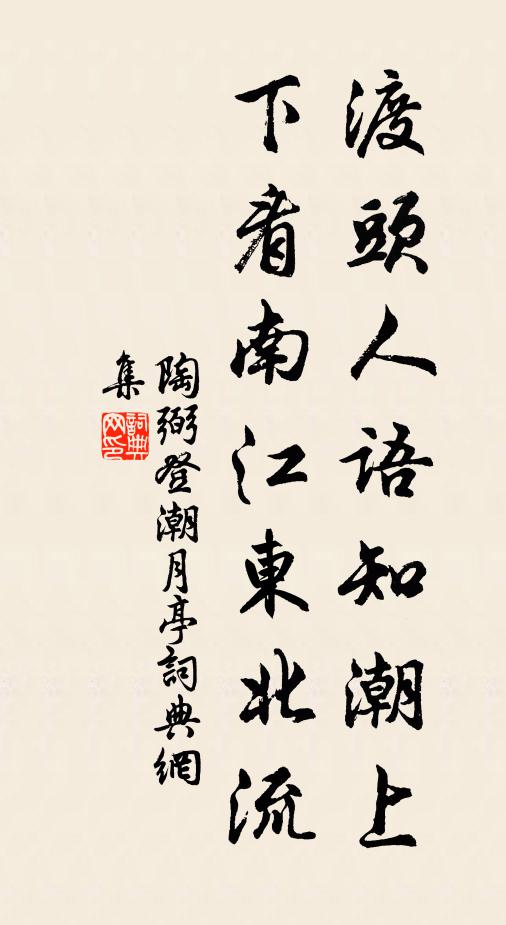 渡頭人語知潮上
下看南江東北流
陶弼登潮月亭詞典網
集
詞典网印